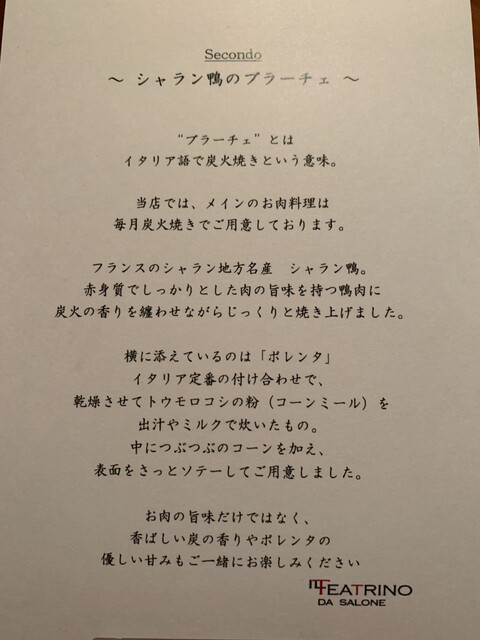 Secondo
～ シャラン鴨のブラーチェ ～
"ブラーチェ" とは
イタリア語で炭火焼きという意味。
当店では、メインのお肉料理は
毎月炭火焼きでご用意しております。
フランスのシャラン地方名産　シャラン鴨。
赤身質でしっかりとした肉の旨味を持つ鴨肉に
炭火の香りを纏わせながらじっくりと焼き上げました。
横に添えているのは「ポレンタ」
イタリア定番の付け合わせで、
乾燥させてトウモロコシの粉（コーンミール）を
出汁やミルクで炊いたもの。
中につぶつぶのコーンを加え、
表面をさっとソテーしてご用意しました。
お肉の旨味だけではなく、
香ばしい炭の香りやポレンタの
優しい甘みもご一緒にお楽しみください
TEATRINO
DA SALONE